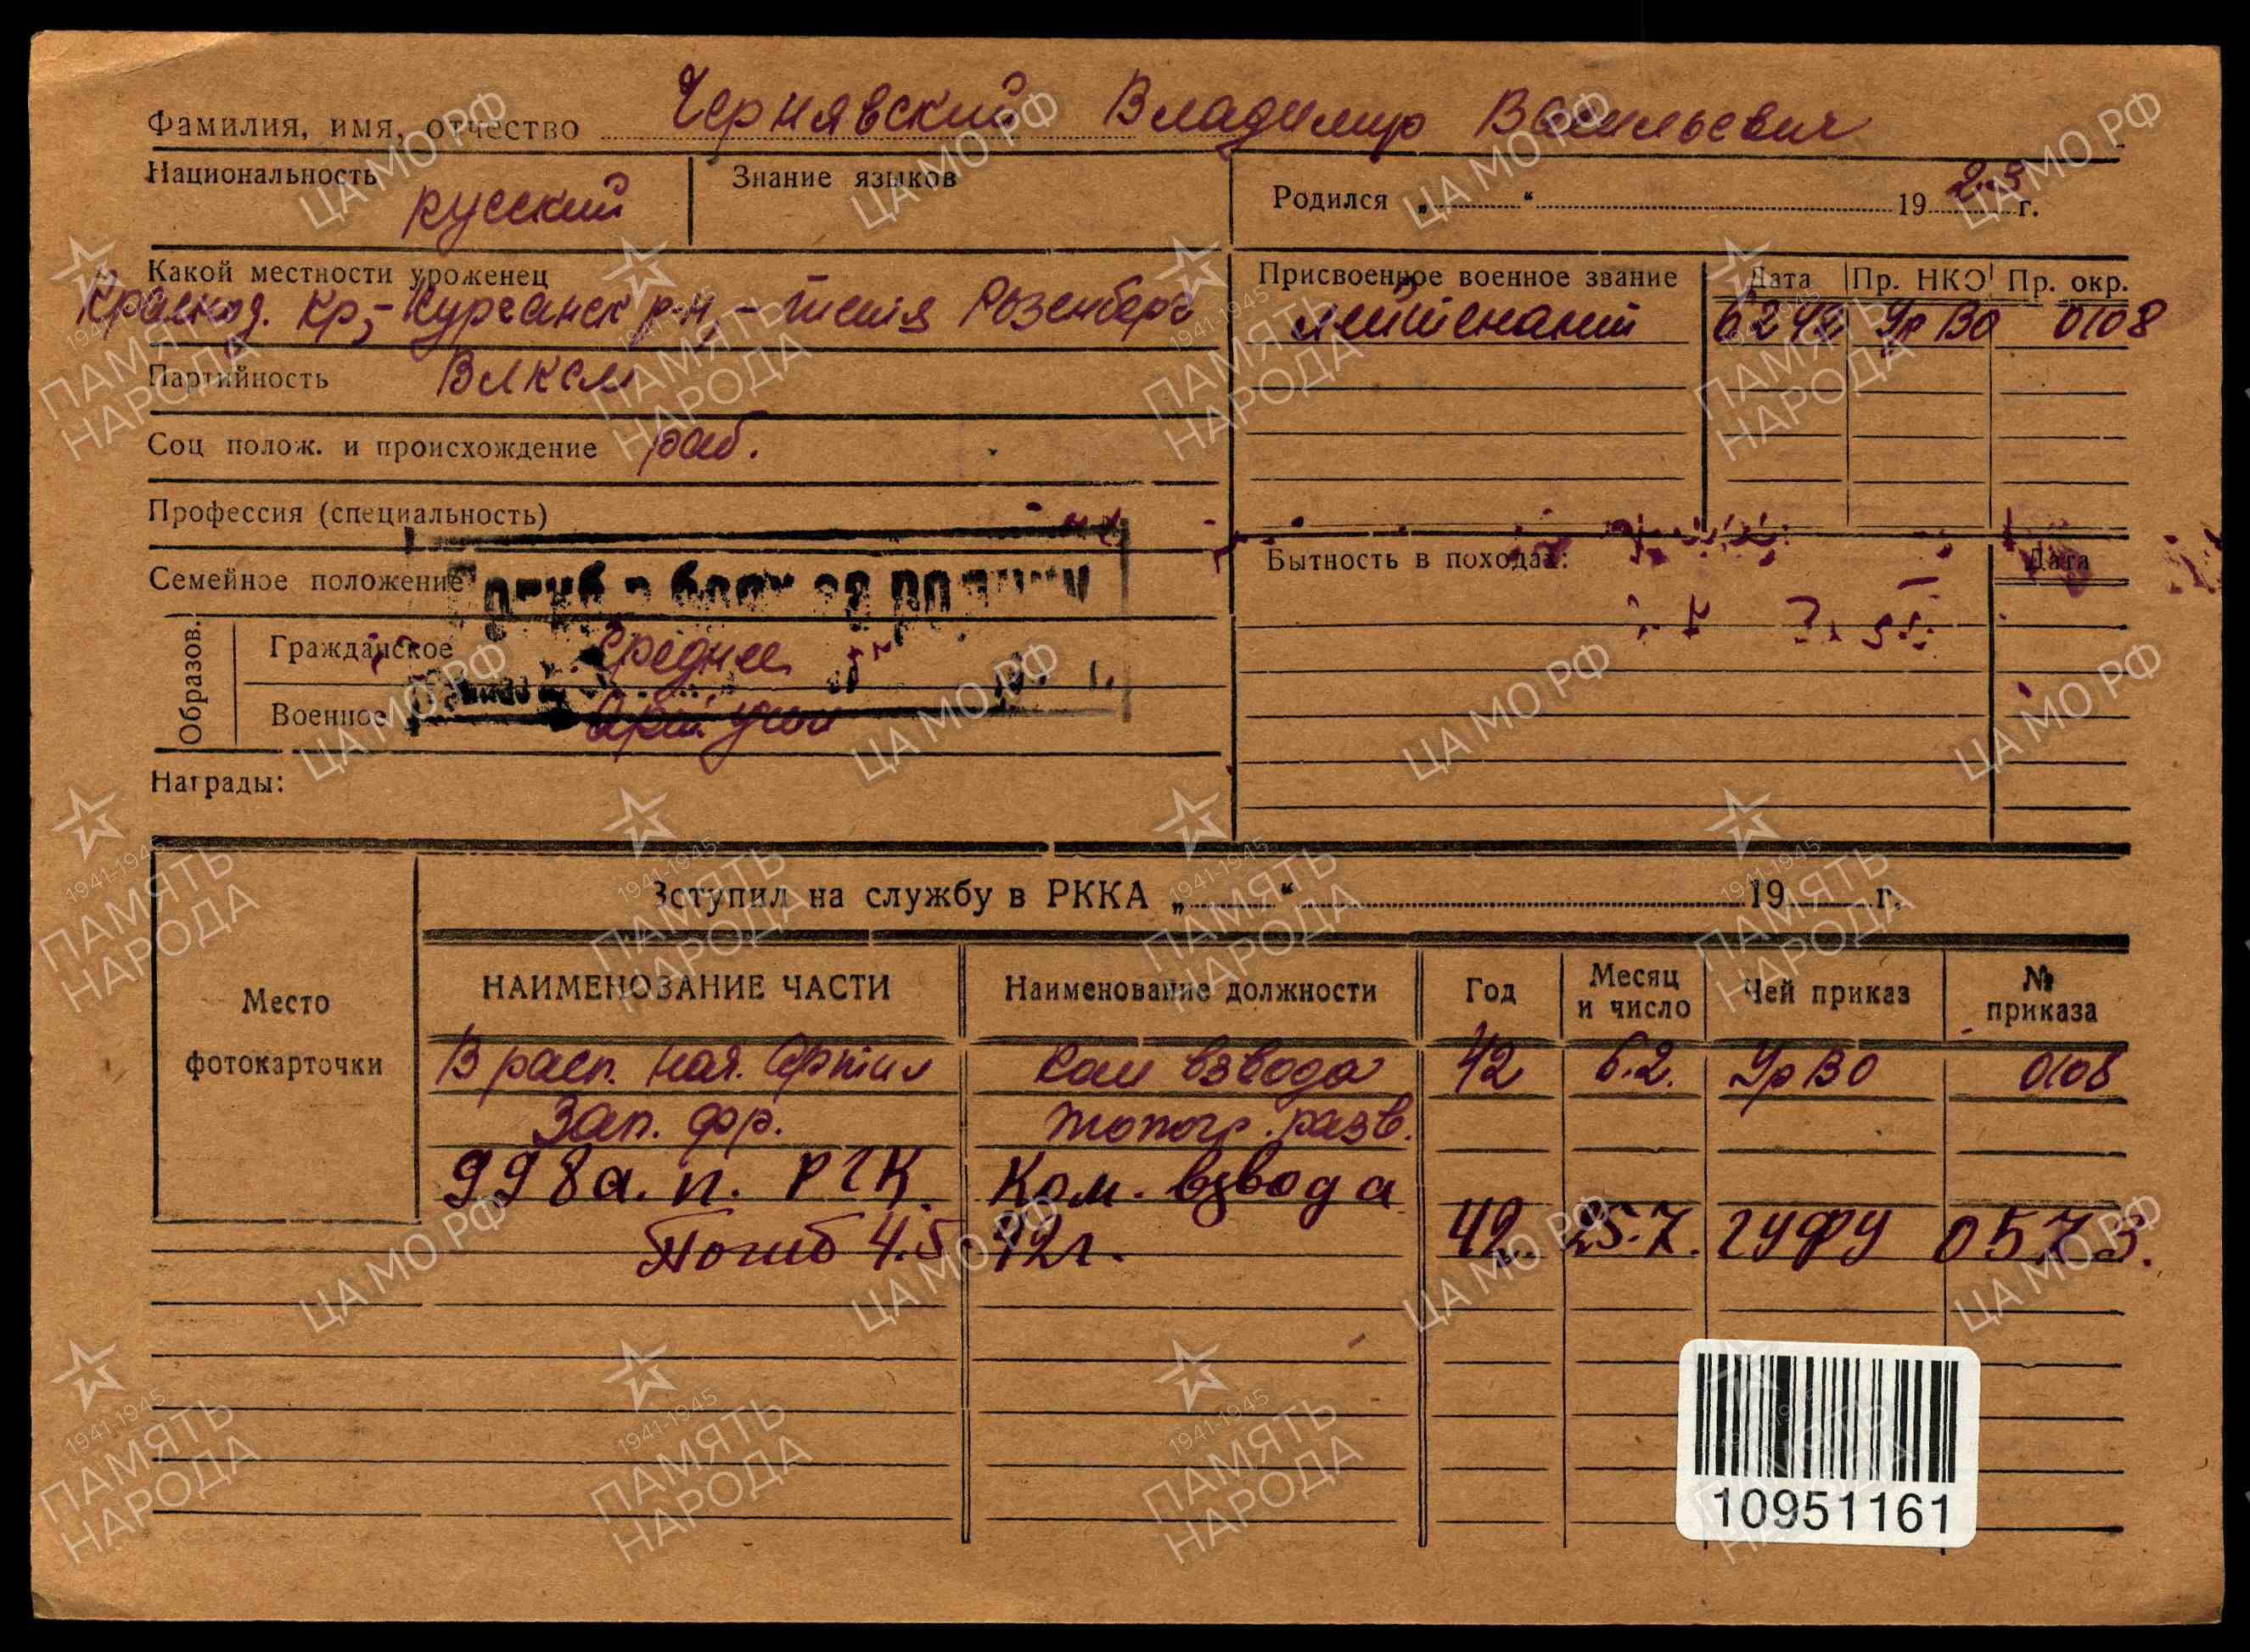 Фамилия, имя, отчество Чернявский Владимир Васильевич
Национальность русский
Знание языков
Родился „ “ 1923 г.
Какой местности уроженец
Краснод. кр,- Курганск р-н,- Розенберг
Присвоенное военное звание Дата Пр. НКО Пр. окр.
лейтенант 6 2 42 УрВО 0108
Партийность ВЛКСМ
Соц полож. и происхождение раб.
Профессия (специальность)
Семейное положение
Бытность в походах: Дата
Образов.
Гражданское Среднее
Военное Арт. учил
Награды:
Вступил на службу в РККА „ “ 19 г.
Место
фотокарточки
НАИМЕНОВАНИЕ ЧАСТИ Наименование должности Год Месяц и число Чей приказ № приказа
В расп. нач. Артил Ком взвода 42 6.2. УрВО 0108
Зап. фр. топогр. разв.
998 а. п. РГК Ком. взвода
Погиб 4.5.42г. 42. 25.7. ГУФУ 0573.
10951161
ЦА МО РФ
1941-1945
ПАМЯТЬ
НАРОДА